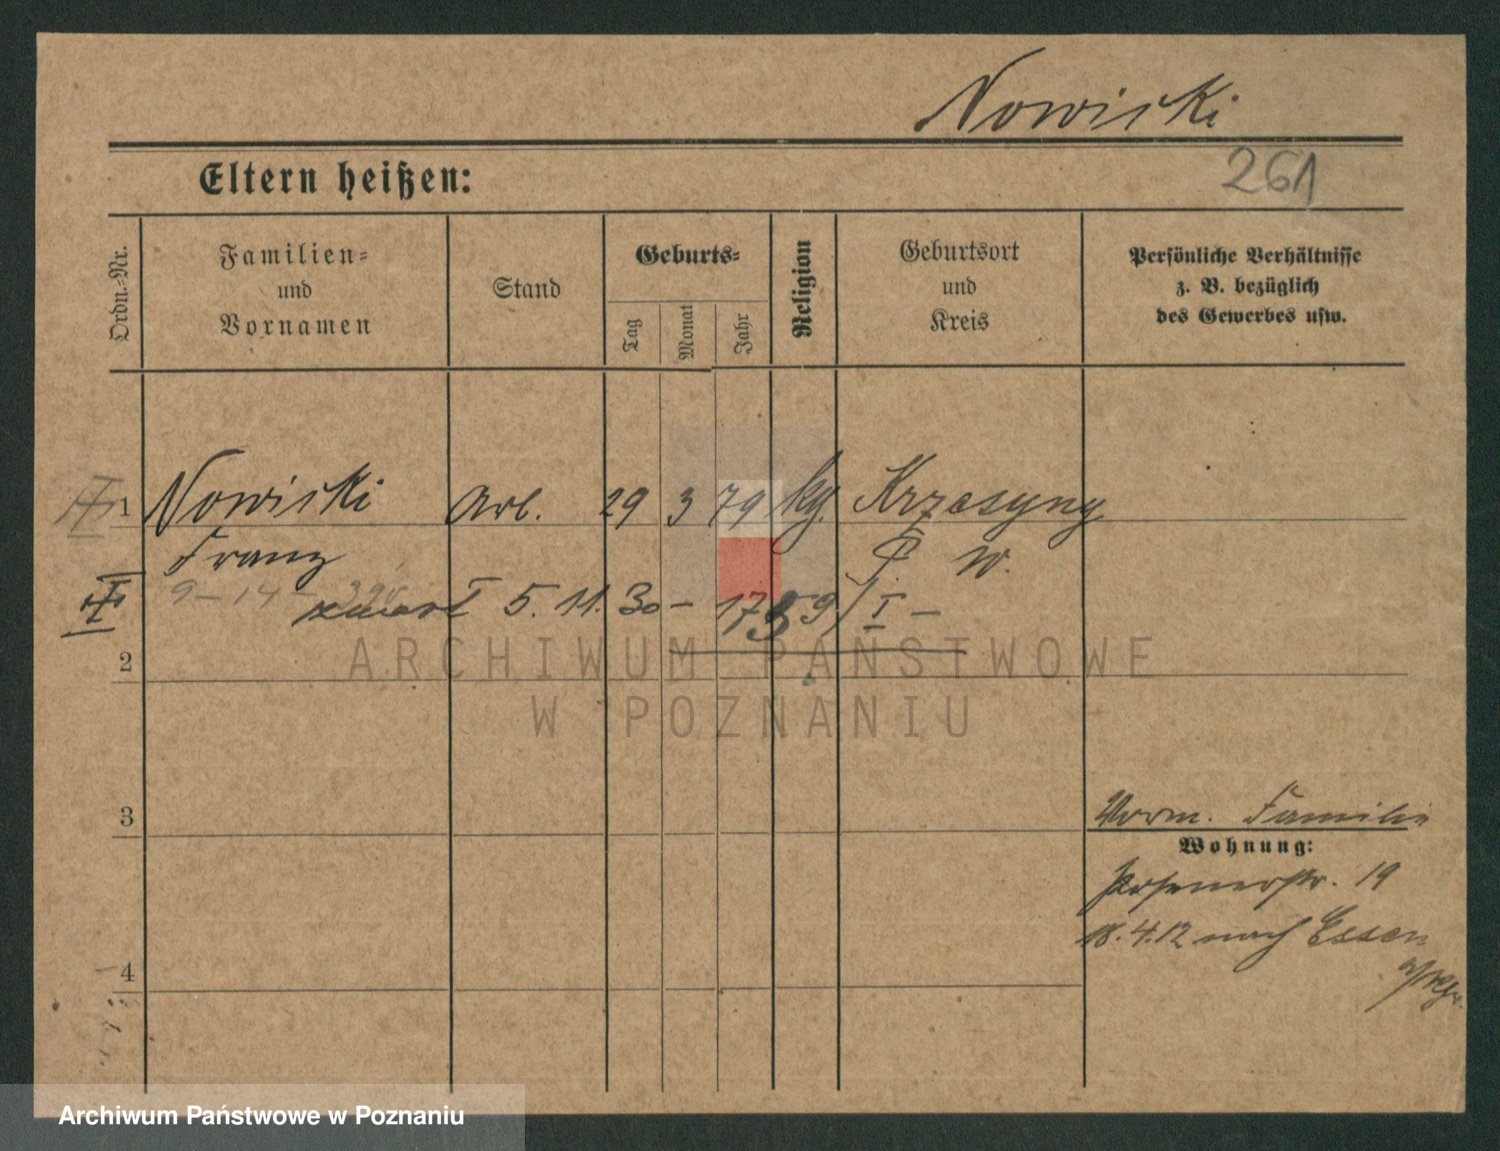 Nowicki
261
Eltern heißen:
Ordn.-Nr.
Familien-
und
Vornamen
Stand
Geburts-
Tag
Monat
Jahr
Religion
Geburtsort
und
Kreis
Persönliche Verhältnisse
z. B. bezüglich
des Gewerbes usw.
1 Nowicki Arb. 29 3 79 kg. Krzesyny
Franz W.
9-14-
zmarł 5. 11. 30 -
I -
2
ARCHIWUM PAŃSTWOWE
W POZNANIU
3
Vorm. Familie
Wohnung:
Posenerstr. 19
18.4.12 nach Essen
4
Archiwum Państwowe w Poznaniu